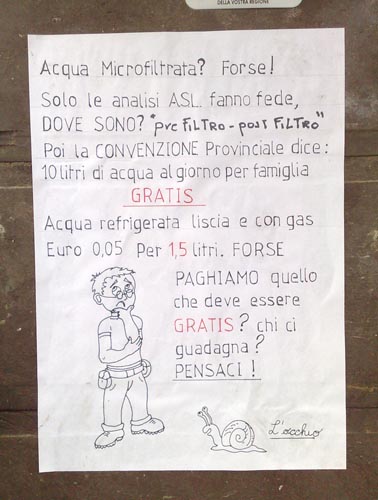 DELLA VOSTRA REGIONE
Acqua Microfiltrata? Forse!
Solo le analisi ASL. fanno fede,
DOVE SONO? "pre FILTRO - post FILTRO"
Poi la CONVENZIONE Provinciale dice:
10 litri di acqua al giorno per famiglia
GRATIS
Acqua refrigerata liscia e con gas
Euro 0,05 Per 1,5 litri. FORSE
PAGHIAMO quello
che deve essere
GRATIS? chi ci
guadagna?
PENSACI!
L'occhio